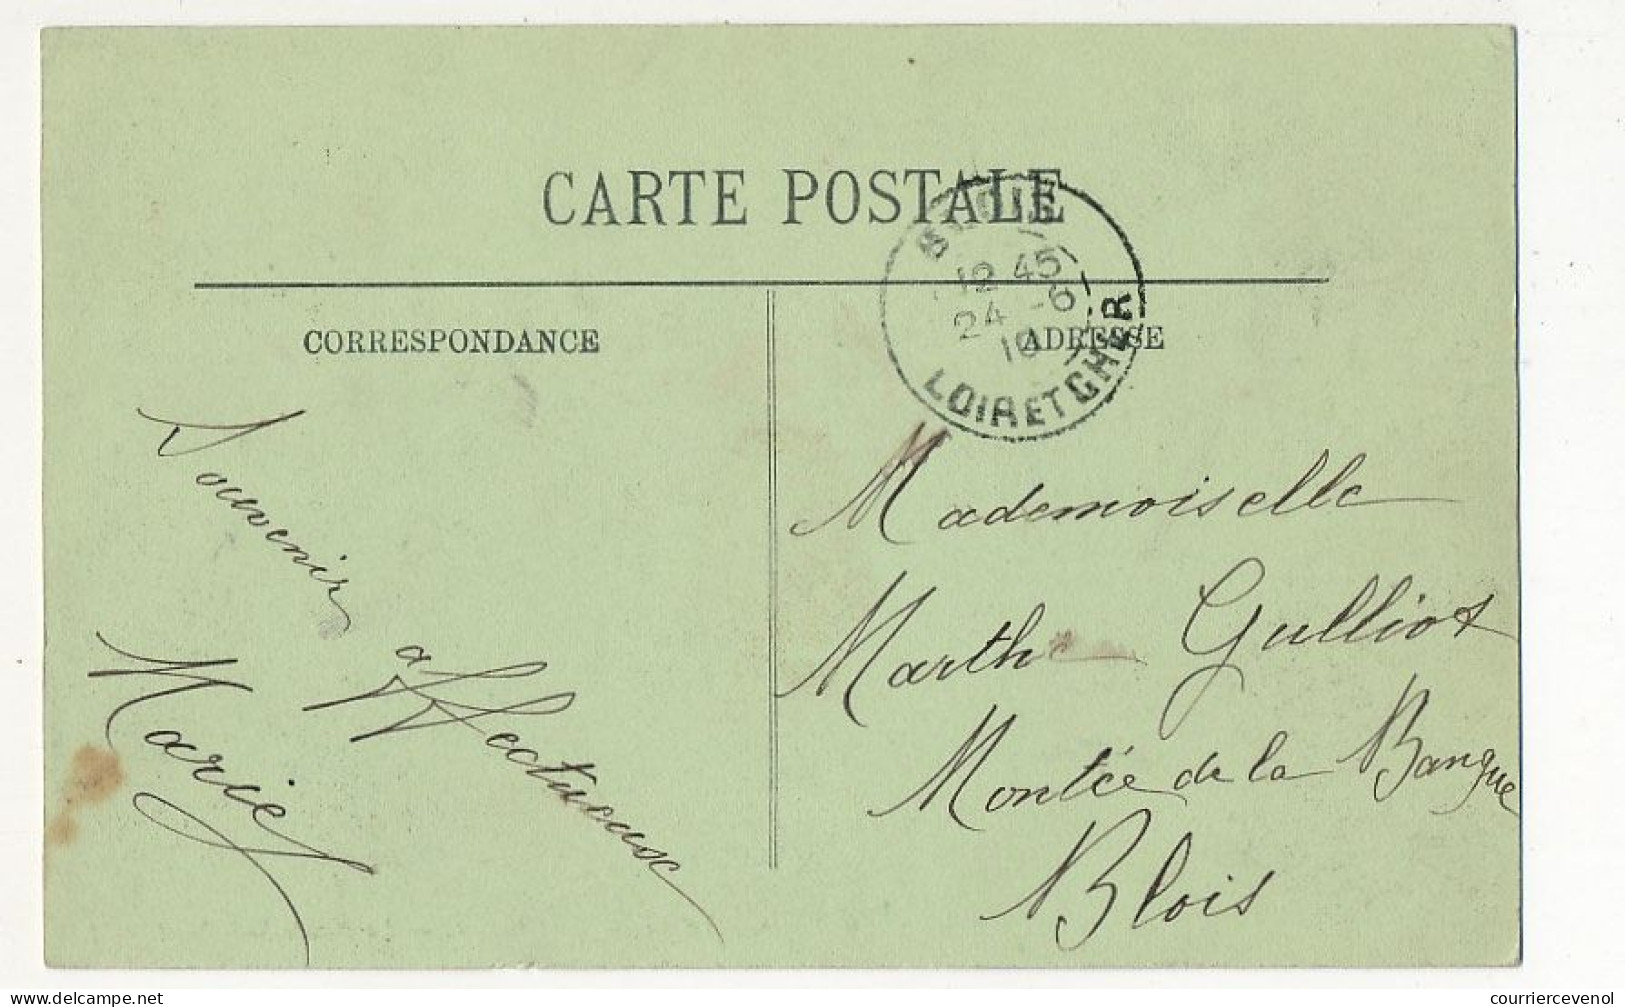 CARTE POSTALE
BLOIS
12 45
24 - 6
10
LOIR ET CHER
CORRESPONDANCE
ADRESSE
Souvenir
affectueuse
Marie
Mademoiselle
Marthe Gulliot
Montée de la Banque
Blois
courriercevenol
www.delcampe.net